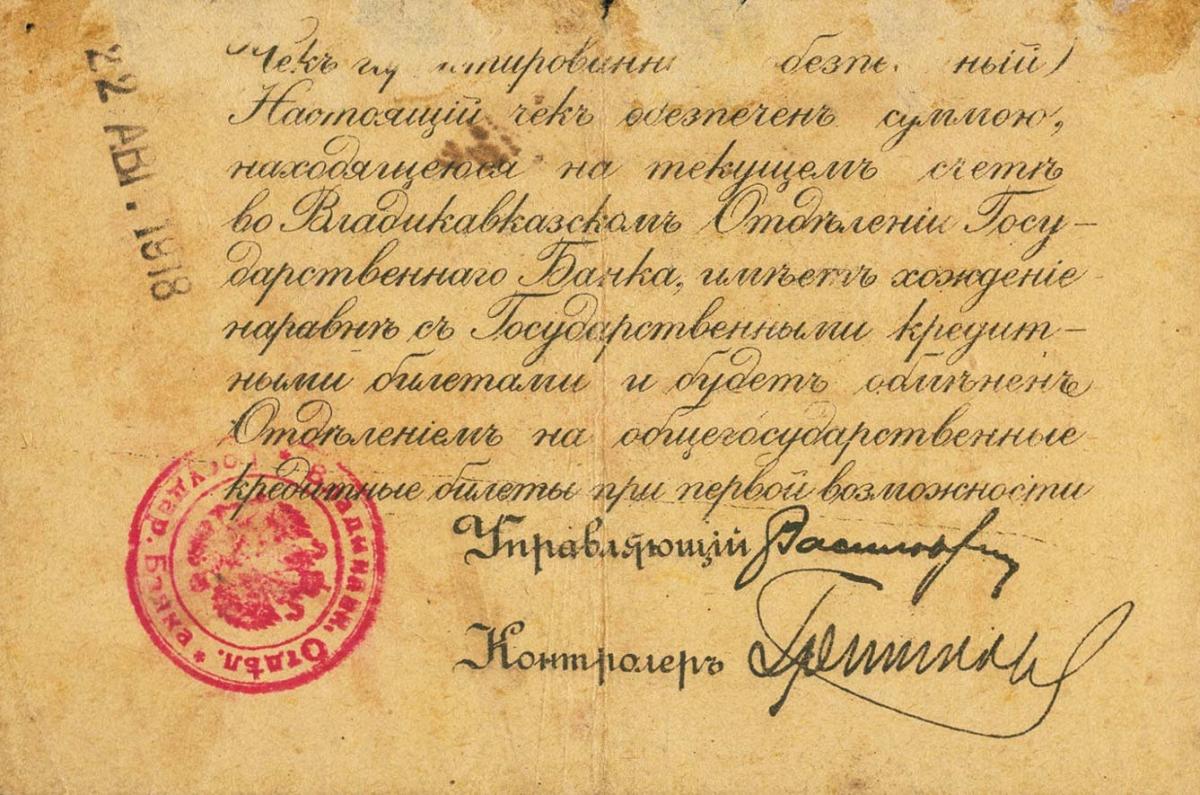 Чекъ
Настоящій чекъ обезпеченъ суммою,
находящеюся на текущемъ счетѣ
во Владикавказскомъ Отдѣленіи Госу-
дарственнаго Банка, имѣетъ хожденіе
наравнѣ съ Государственными кредит-
ными билетами и будетъ обмѣненъ
Отдѣленіемъ на общегосударственные
кредитные билеты при первой возможности
Управляющій
Контролеръ
22 АВГ. 1918
* Владикавк. Отдѣл. * Государ. Банка